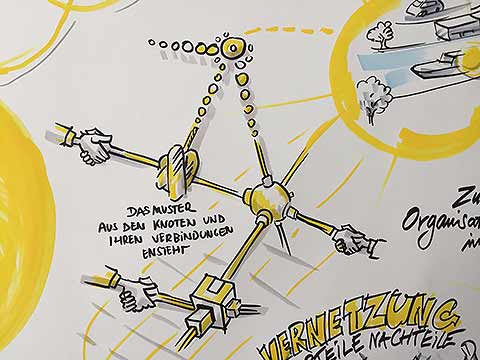 DAS MUSTER
AUS DEN KNOTEN UND
IHREN VERBINDUNGEN
ENSTEHT
Organisat
VERNETZUNG
TEILE NACHTEILE